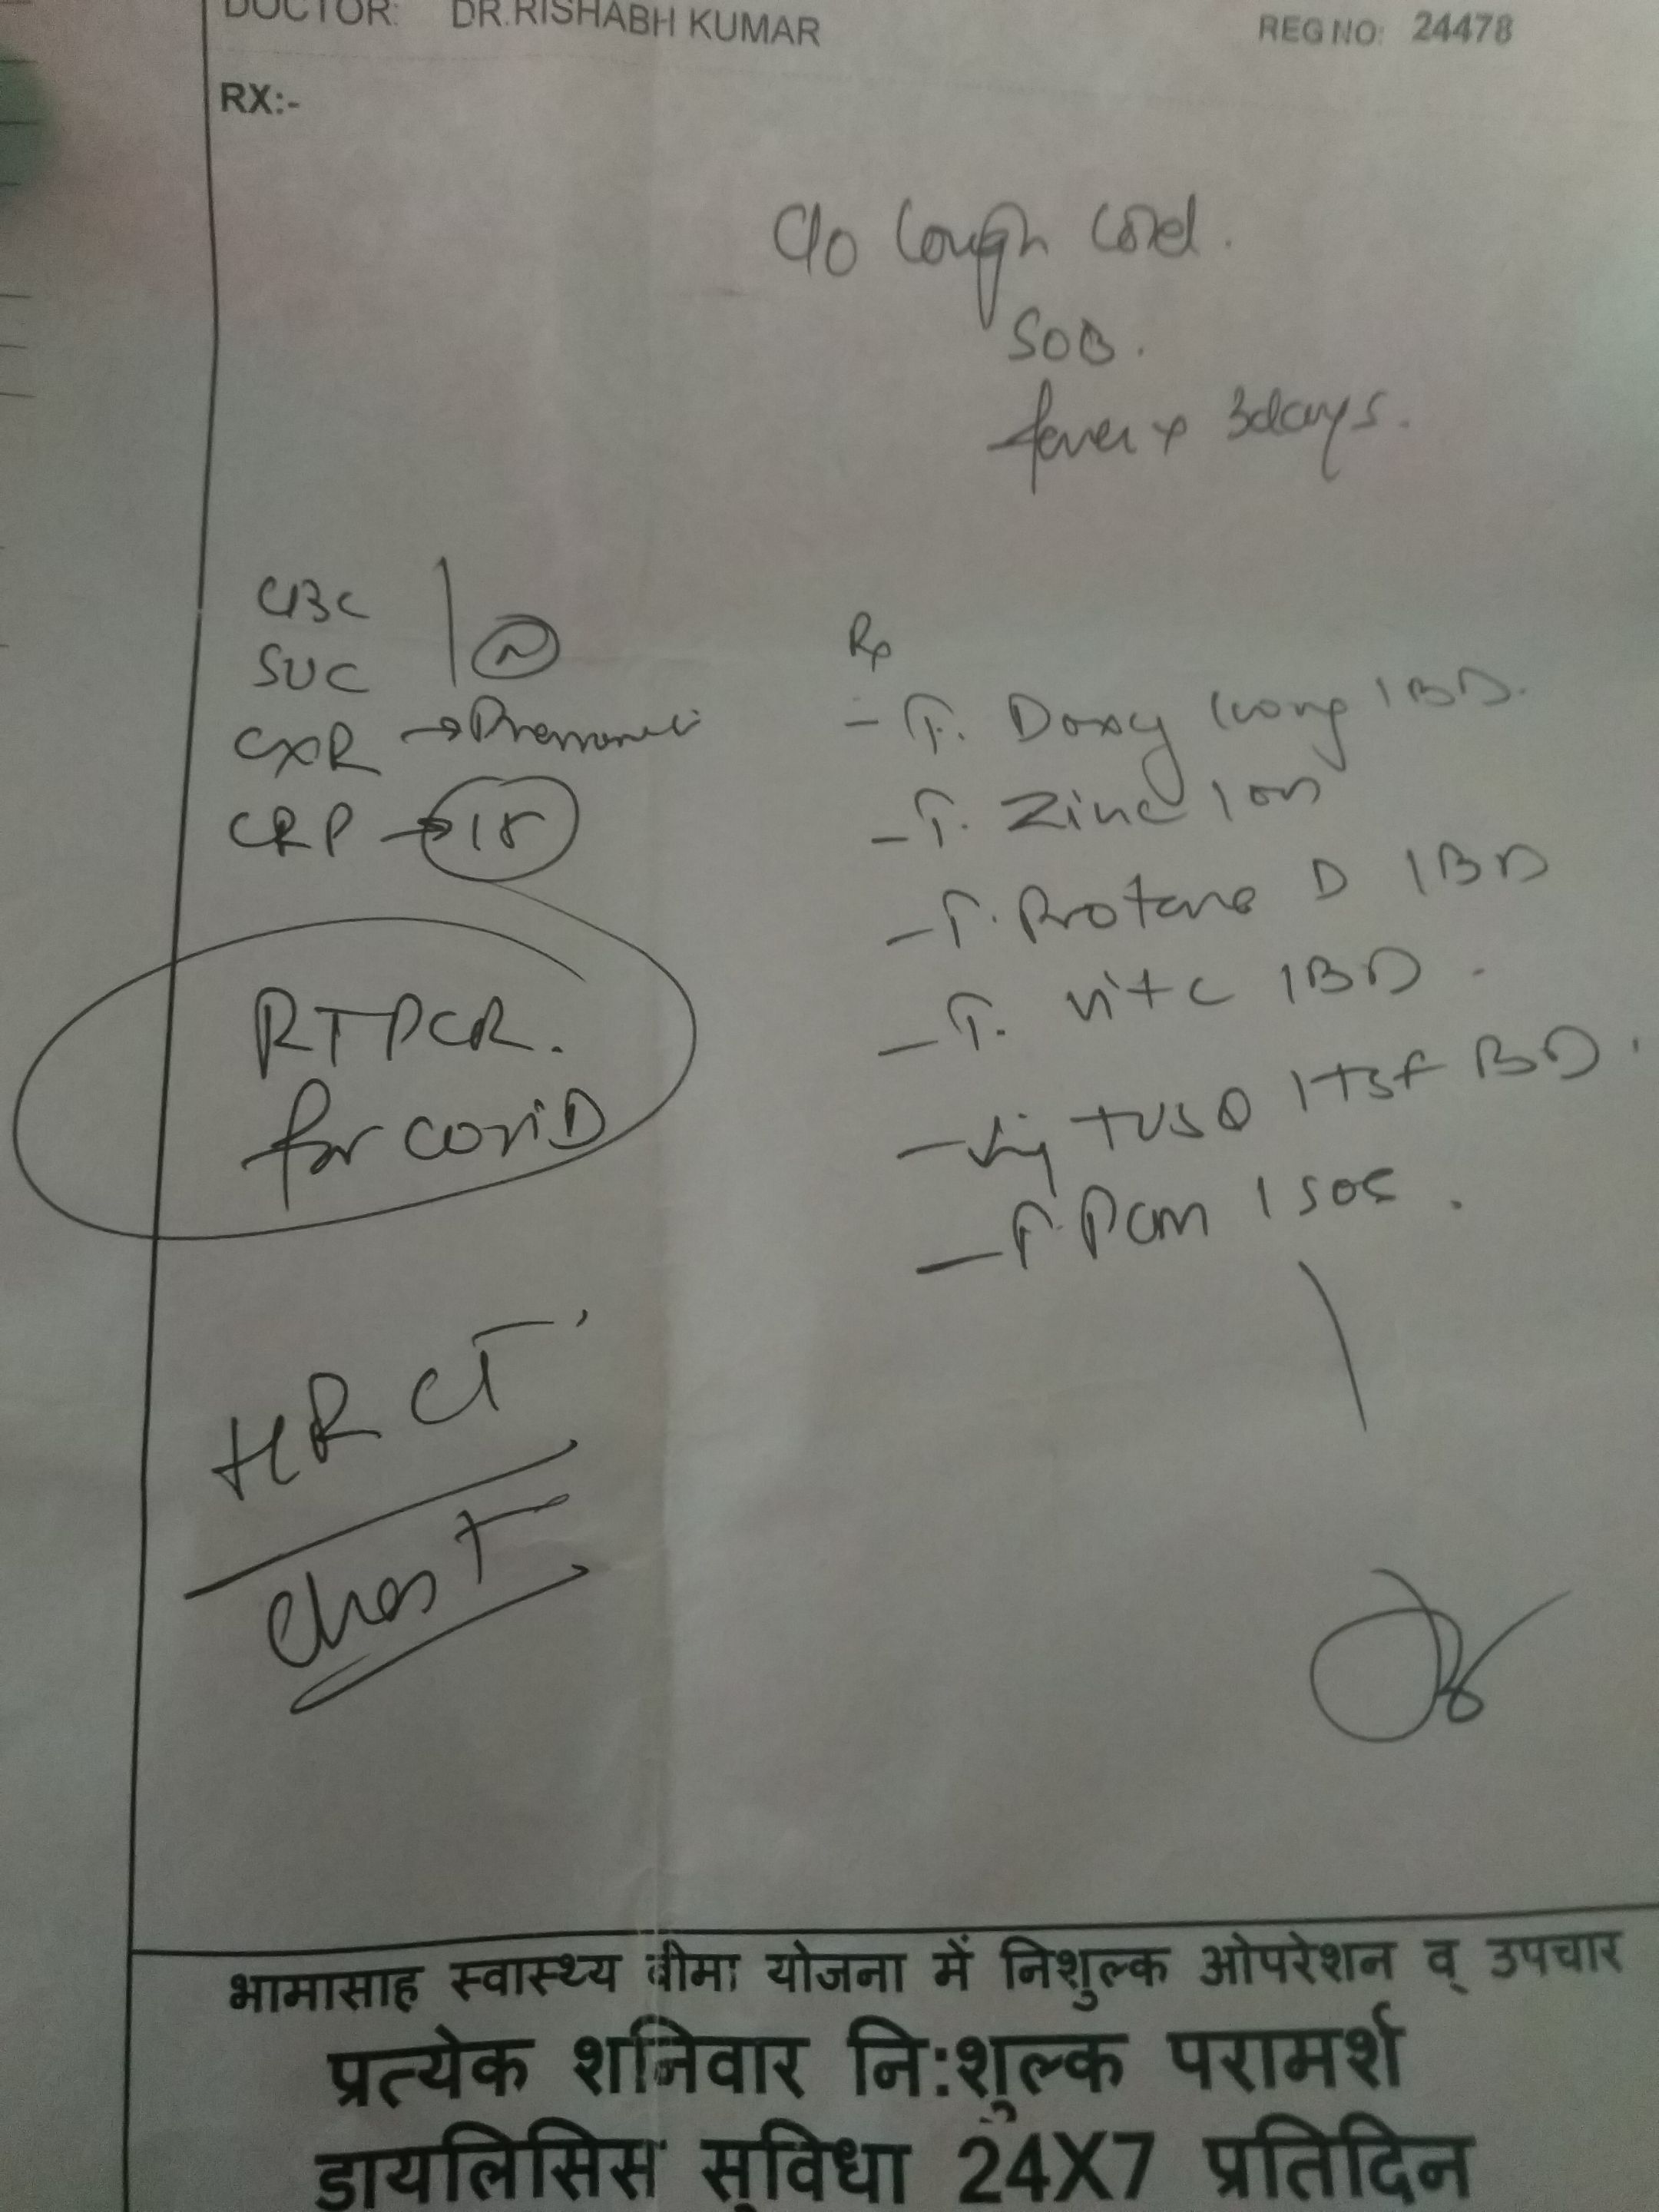 DOCTOR: DR.RISHABH KUMAR REG NO: 24478
RX:-
C/o Cough Cold.
SOB.
fever x 3days.
CBC
SUC
CXR →
CRP → 18
RTPCR.
for coviD
HRCT
Chest
Rx
- T. Doxy 100mg 1BD.
- T. Zinc 1 OD
- T. D 1BD
- T. vit c 1BD.
- TUSQ 1TSF BD.
- T. PCM 1 SOS.
भामासाह स्वास्थ्य बीमा योजना में निशुल्क ओपरेशन व् उपचार
प्रत्येक शनिवार नि:शुल्क परामर्श
डायलिसिस सुविधा 24X7 प्रतिदिन